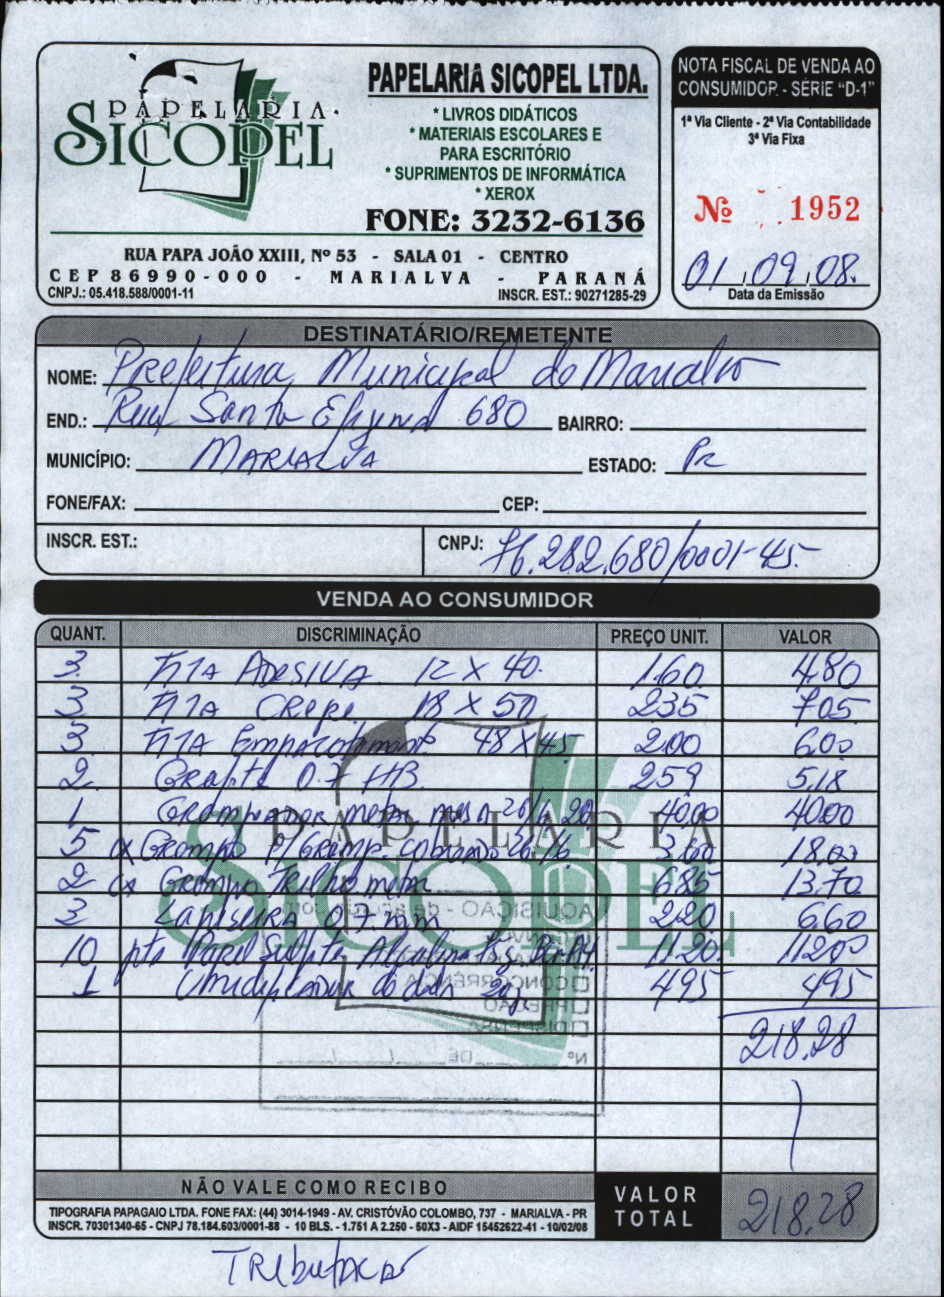 PAPELARIA SICOPEL
PAPELARIA SICOPEL LTDA.
* LIVROS DIDÁTICOS
* MATERIAIS ESCOLARES E
PARA ESCRITÓRIO
* SUPRIMENTOS DE INFORMÁTICA
* XEROX
FONE: 3232-6136
RUA PAPA JOÃO XXIII, Nº 53 - SALA 01 - CENTRO
CEP 86990-000 - MARIALVA - PARANÁ
CNPJ.: 05.418.588/0001-11 INSCR. EST.: 90271285-29
NOTA FISCAL DE VENDA AO
CONSUMIDOR - SÉRIE "D-1"
1ª Via Cliente - 2ª Via Contabilidade
3ª Via Fixa
Nº 1952
01 09 08.
Data da Emissão
DESTINATÁRIO/REMETENTE
NOME: Prefeitura Municipal de Marialva
END.: Rua Santa Efigenia 680 BAIRRO:
MUNICÍPIO: MARIALVA ESTADO: Pr
FONE/FAX: CEP:
INSCR. EST.: CNPJ: 76.282.680/0001-45
VENDA AO CONSUMIDOR
QUANT. DISCRIMINAÇÃO PREÇO UNIT. VALOR
3 FITA ADESIVA 12 X 40 1.60 4.80
3 FITA CREPE 18 X 50 235 705
3 FITA Empacotamento 48 X 45 200 6.00
2 Grafite 0.7 HB 259 5.18
1 Grampeador metal mesa 26/6 20 4000 4000
5 cx Grampo P/ Gramp. cobreado 26/6 3.60 18.00
2 cx Grampo Trilho metal 685 13.70
3 LAPISEIRA 0.7 mm 220 6.60
10 pts Papel Sulfite Alcalino 75g A4 11.20 11200
1 Umidificador de dedo 495 495
218,28
NÃO VALE COMO RECIBO
TIPOGRAFIA PAPAGAIO LTDA. FONE FAX: (44) 3014-1949 - AV. CRISTÓVÃO COLOMBO, 737 - MARIALVA - PR
INSCR. 70301340-65 - CNPJ 78.184.603/0001-88 - 10 BLS. - 1.751 A 2.250 - 50X3 - AIDF 15452622-41 - 10/02/08
VALOR
TOTAL
218,28